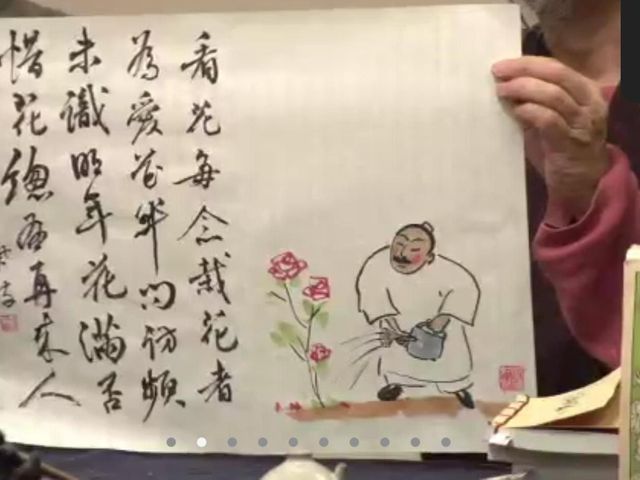 看花每念栽花者
為愛花訪頻
未識明年花滿否
惜花總有再來人